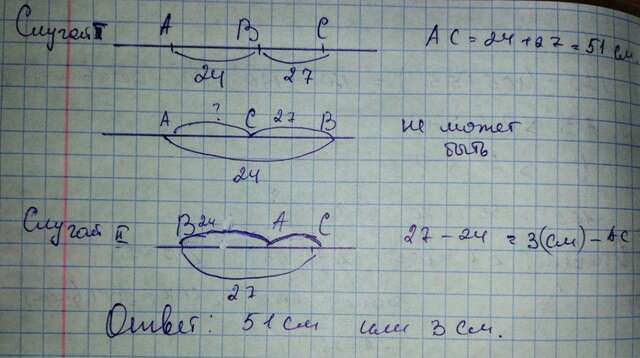 Случай I A B C AC = 24 + 27 = 51 см.
24 27
A ? C 27 B не может
быть
24
Случай II B 24 A C 27 - 24 = 3(см) - AC
27
Ответ: 51 см или 3 см.